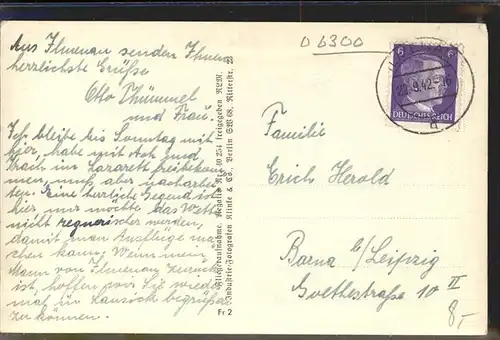 Aus Ilmenau senden Ihnen
herrlichste Grüße
Otto Thümmel
und Frau.
Ich bleibe bis Sonntag mit
hier, habe mit Ach und
Krach im Lazarett freibekom
men, muß aber nacharbei
ten. Eine herrliche Gegend ist
hier nur möchte das Wetter
nicht regnerischer werden,
damit man Ausflüge ma
chen kann. Wenn mein
Mann von Ilmenau zurück
ist, hoffen wir Sie wieder
mal in Lausick begrüßen
zu können.
Fliegeraufnahme. Negativ Nr. 40 254 freigegeben RLM.
Industrie-Fotografen Klinke & Co. Berlin SW 68, Ritterstr. 23
Fr 2
06300
6 6
22.9.42
DEUTSCHES REICH
a
Familie
Erich Herold
Borna b/Leipzig
Goethestraße 10 II
8,-